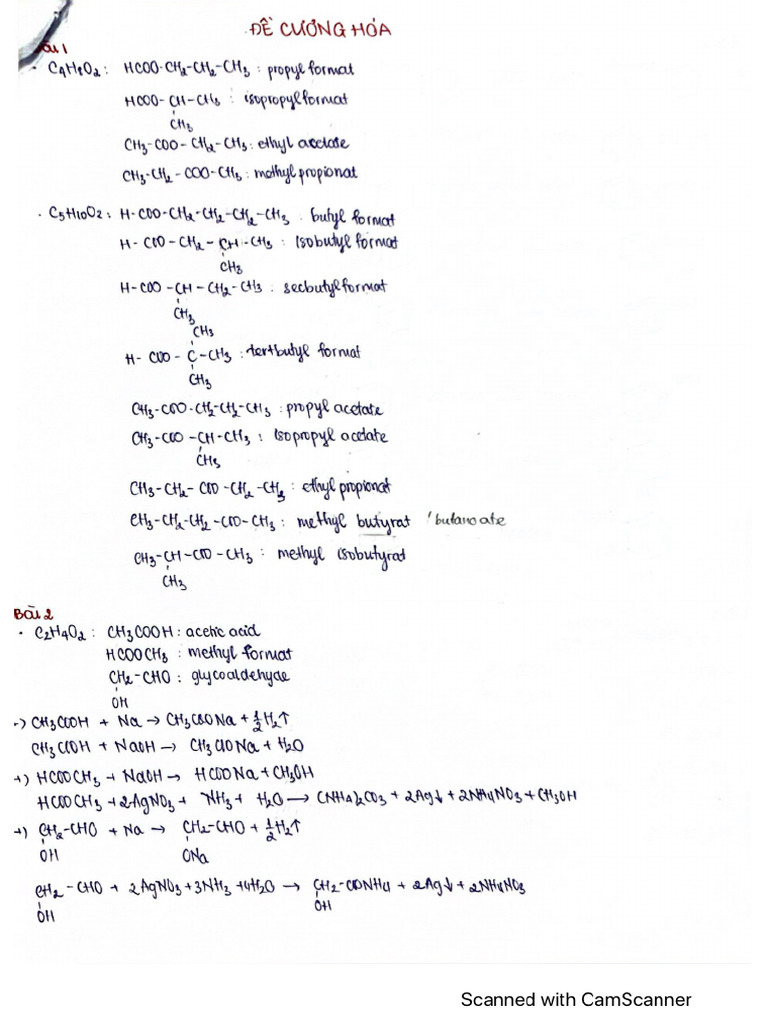 ĐỀ CƯƠNG HÓA
Bài 1
. C4H8O2 : HCOO-CH2-CH2-CH3 : propyl format
HCOO-CH-CH3 : isopropyl format
CH3
CH3-COO-CH2-CH3 : ethyl acetate
CH3-CH2-COO-CH3 : methyl propionat
. C5H10O2 : H-COO-CH2-CH2-CH2-CH3 : butyl format
H-COO-CH2-CH-CH3 : Isobutyl format
CH3
H-COO-CH-CH2-CH3 : secbutyl format
CH3
CH3
H-COO-C-CH3 : tertbutyl format
CH3
CH3-COO-CH2-CH2-CH3 : propyl acetate
CH3-COO-CH-CH3 : Isopropyl acetate
CH3
CH3-CH2-COO-CH2-CH3 : ethyl propionat
CH3-CH2-CH2-COO-CH3 : methyl butyrat / butanoate
CH3-CH-COO-CH3 : methyl isobutyrat
CH3
Bài 2
. C2H4O2 : CH3COOH : acetic acid
HCOOCH3 : methyl format
CH2-CHO : glycoaldehyde
OH
+) CH3COOH + Na → CH3COONa + 1/2 H2↑
CH3COOH + NaOH → CH3COONa + H2O
+) HCOOCH3 + NaOH → HCOONa + CH3OH
HCOOCH3 + 2AgNO3 + NH3 + H2O → (NH4)2CO3 + 2Ag↓ + 2NH4NO3 + CH3OH
+) CH2-CHO + Na → CH2-CHO + 1/2 H2↑
OH ONa
CH2-CHO + 2AgNO3 + 3NH3 + H2O → CH2-COONH4 + 2Ag↓ + 2NH4NO3
OH OH
Scanned with CamScanner